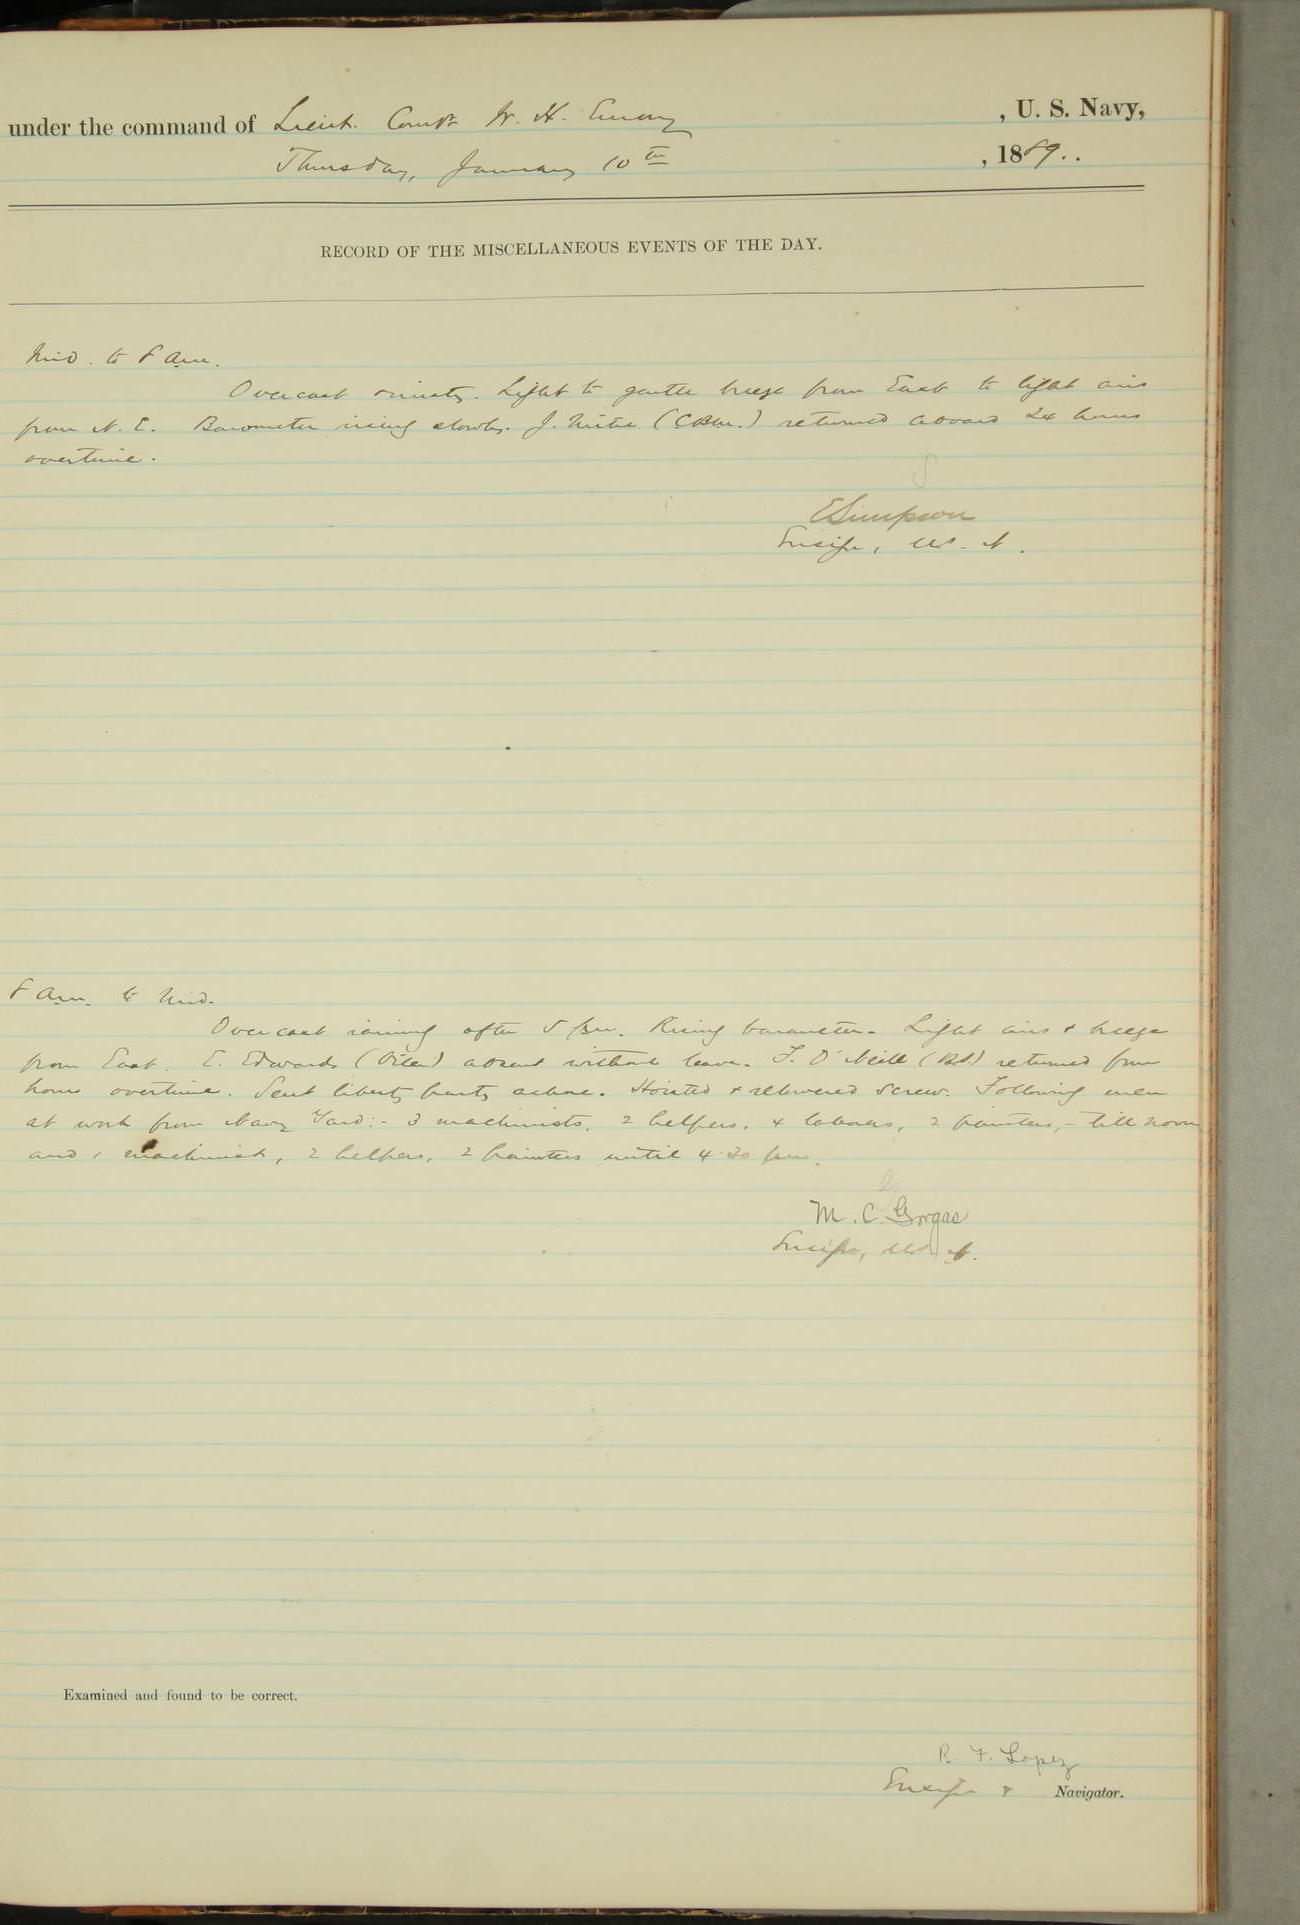 under the command of Lieut. Comdr W. H. Emory, U. S. Navy,
Thursday, January 10th, 1889.
RECORD OF THE MISCELLANEOUS EVENTS OF THE DAY.
Mid. to 8 a.m.
Overcast & misty. Light to gentle breeze from East to light airs
from N. E. Barometer rising slowly. J. (CBM.) returned aboard 24 hours
overtime.
E Simpson
Ensign, U.S. N.
8 a.m. to Mid.
Overcast raining after 5 p.m. Rising barometer. Light airs & breeze
from East. E. Edwards (Oiler) absent without leave. F. O'Neill (Bs) returned four
hours overtime. Sent liberty party ashore. Hoisted & relowered screw. Following men
at work from Navy Yard:- 3 machinists, 2 helpers, 4 laborers, 2 painters,- till noon
and 1 machinist, 2 helpers, 2 painters until 4.30 p.m.
M. C. Gorgas
Ensign, U.S. N.
Examined and found to be correct.
R. F. Lopez
Ensign & Navigator.